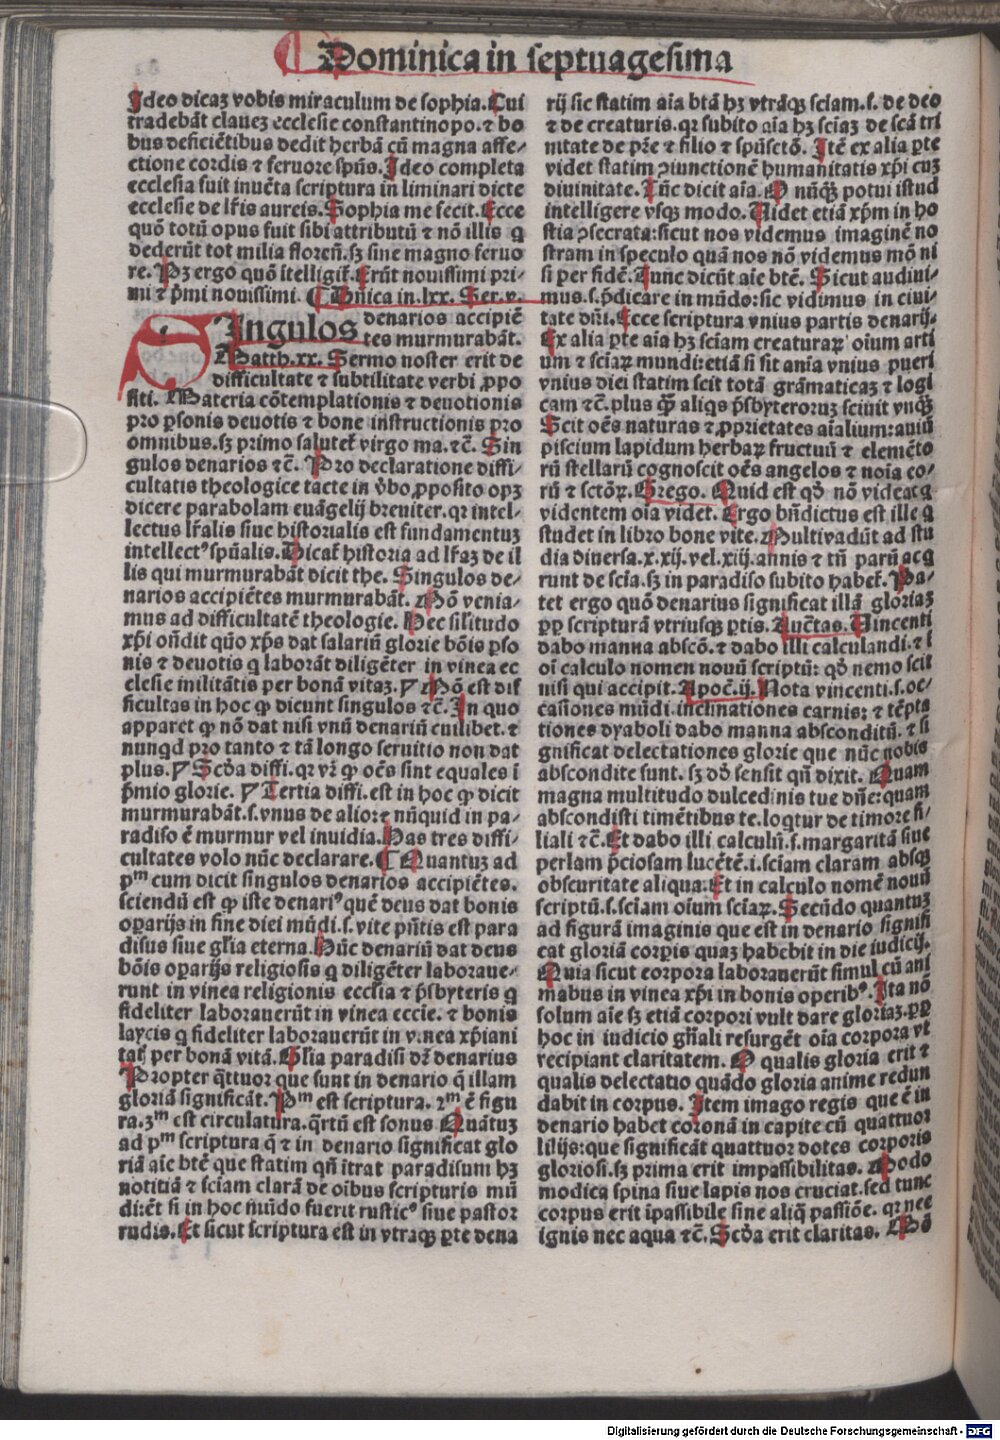 Dominica in septuagesima
Ideo dicaꝫ vobis miraculum de sophia. Cui
tradebāt claueꝫ ecclesie constantinopo. ⁊ bo
bus deficiētibus dedit herbā cū magna affe⸗
ctione cordis ⁊ feruore spūs. Ideo completa
ecclesia fuit inuēta scriptura in liminari dicte
ecclesie de lr̄is aureis. Sophia me fecit. Ecce
quō totū opus fuit sibi attributū ⁊ nō illis q
dederūt tot milia floreñ. sꝫ sine magno feruo
re. Pꝫ ergo quō ītelligit̄. Erūt nouissimi pri⸗
mi ⁊ p̄mi nouissimi. ¶ Dn̄ica in. lxx. Ser. v.
SIngulos denarios accipiē
tes murmurabāt.
Matth. xx. Sermo noster erit de
difficultate ⁊ subtilitate verbi ꝓpo
siti. Materia cōtemplationis ⁊ deuotionis
pro ꝑsonis deuotis ⁊ bone instructionis pro
omnibus. sꝫ primo salutet̄ virgo ma. ⁊c̄. Sin
gulos denarios ⁊c̄. Pro declaratione diffi⸗
cultatis theologice tacte in v̄bo ꝓposito opꝫ
dicere parabolam euāgelij breuiter. qꝛ intel⸗
lectus lr̄alis siue historialis est fundamentuꝫ
intellectꝰ spūalis. Dicat̄ historia ad lr̄aꝫ de il
lis qui murmurabāt dicit the. Singulos de⸗
narios accipiētes murmurabāt. Mō venia⸗
mus ad difficultatē theologie. Hec sil̄itudo
xp̄i on̄dit quō xp̄s dat salariū glorie bōis ꝑso
nis ⁊ deuotis q laborāt diligēter in vinea ec
clesie militātis per bonā vitaꝫ. ¶ Mō est dif
ficultas in hoc ꝙ dicunt singulos ⁊c̄. In quo
apparet ꝙ nō dat nisi vnū denariū cuilibet. ⁊
nunqd pro tanto ⁊ tā longo seruitio non dat
plus. ¶ Scd̄a diffi. qꝛ vr̄ ꝙ oēs sint equales ī
p̄mio glorie. ¶ Tertia diffi. est in hoc ꝙ dicit
murmurabāt. s. vnus de aliore nūquid in pa⸗
radiso ē murmur vel inuidia. Has tres diffi⸗
cultates volo nūc declarare. ¶ Quantuꝫ ad
pᵐ cum dicit singulos denarios accipiētes.
sciendū est ꝙ iste denariꝰ quē deus dat bonis
oꝑarijs in fine diei mūdi. s. vite pn̄tis est para
disus siue gl̄ia eterna. Hūc denariū dat deus
bōis oꝑarijs religiosis q diligēter laboraue⸗
runt in vinea religionis eccl̄ia ⁊ p̄sbyteris q
fideliter laborauerūt in vinea eccie. ⁊ bonis
laycis q fideliter laborauerūt in vinea xp̄iani
tat̄ per bonā vitā. Gl̄ia paradisi dr̄ denarius
Propter q̄ttuor que sunt in denario q̄ illam
gloriā significāt. Pᵐ est scriptura. 2ᵐ ē figu
ra. 3ᵐ est circulatura. q̄rtū est sonus Quātuꝫ
ad pᵐ scriptura q̄ ⁊ in denario significat glo
riā aīe btē que statim qn̄ ītrat paradisum hꝫ
notitiā ⁊ sciam clarā de oībus scripturis mū
di: ēt si in hoc mūdo fuerit rusticꝰ siue pastor
rudis. Et sicut scriptura est in vtraqꝫ ꝑte dena
rij sic statim aīa btā hꝫ vtrāqꝫ sciam. s. de deo
⁊ de creaturis. qꝛ subito aīa hꝫ sciāꝫ de scā tri
nitate de pr̄e ⁊ filio ⁊ spūsctō. Itē ex alia ꝑte
videt statim ꝯiunctionē humanitatis xp̄i cuꝫ
diuinitate. Tūc dicit aīa. O nūqꝫ potui istud
intelligere vsqꝫ modo. Uidet etiā xp̄m in ho
stia ꝯsecrata: sicut nos videmus imaginē no
stram in speculo quā nos nō videmus mō ni
si per fidē. Tunc dicūt aīe btē. Sicut audiui⸗
mus. s. p̄dicare in mūdo: sic vidimus in ciui⸗
tate dn̄i. Ecce scriptura vnius partis denarij.
Ex alia ꝑte aīa hꝫ sciam creaturaꝝ oīum arti
um ⁊ sciaꝝ mundi: etiā si sit aīa vnius pueri
vnius diei statim scit totā grāmaticaꝫ ⁊ logi
cam ⁊c̄. plus ꝙ̄ aliqs p̄sbyteroruꝫ sciuit vnqꝫ
Scit oēs naturas ⁊ ꝓprietates aīalium: auiū
piscium lapidum herbaꝝ fructuū ⁊ elemēto
rū stellarū cognoscit oēs angelos ⁊ noīa eo⸗
rū ⁊ sctōꝝ. Grego. Quid est qd̄ nō videat q
videntem oīa videt. Ergo bn̄dictus est ille q
studet in libro bone vite. Multi vadūt ad stu
dia diuersa. x. xij. vel. xiij. annis ⁊ tn̄ parū acq
runt de scia. sꝫ in paradiso subito habet̄. Pa⸗
tet ergo quō denarius significat illā gloriaꝫ
ꝓp scripturā vtriusqꝫ ꝑtis. Auctas. Uincenti
dabo manna abscō. ⁊ dabo illi calculandi. ⁊ ī
oī calculo nomen nouū scriptū: qd̄ nemo scit
nisi qui accipit. Apoc̄. ij. Nota vincenti. s. oc⸗
casiones mūdi. inclinationes carnis: ⁊ tēpta
tiones dyaboli dabo manna absconditū. ⁊ si
gnificat delectationes glorie que nūc nobis
abscondite sunt. sꝫ dd̄ sensit qn̄ dixit. Quam
magna multitudo dulcedinis tue dn̄e: quam
abscondisti timētibus te. loqtur de timore fi⸗
liali ⁊c̄. Et dabo illi calculū. s. margaritā siue
perlam p̄ciosam lucētē. i. sciam claram absqꝫ
obscuritate aliqua. Et in calculo nomē nouū
scriptū. s. sciam oīum sciaꝝ. Secūdo quantuꝫ
ad figurā imaginis que est in denario signifi
cat gloriā corꝑis quaꝫ habebit in die iudicij.
Quia sicut corpora laborauerūt simul cū ani
mabus in vinea xp̄i in bonis operibꝰ. Ita nō
solum aīe sꝫ etiā corpori vult dare gloriaꝫ. ꝓp
hoc in iudicio gn̄ali resurgēt oīa corpora vt
recipiant claritatem. O qualis gloria erit ⁊
qualis delectatio quādo gloria anime redun
dabit in corpus. Item imago regis que ē in
denario habet coronā in capite cū quattuor
lilijs: que significāt quattuor dotes corporis
gloriosi. sꝫ prima erit impassibilitas. Modo
modica spina siue lapis nos cruciat. sed tunc
corpus erit īpassibile sine aliq̄ passiōe. qꝛ nec
ignis nec aqua ⁊c̄. Scd̄a erit claritas. Mō
Digitalisierung gefördert durch die Deutsche Forschungsgemeinschaft - DFG